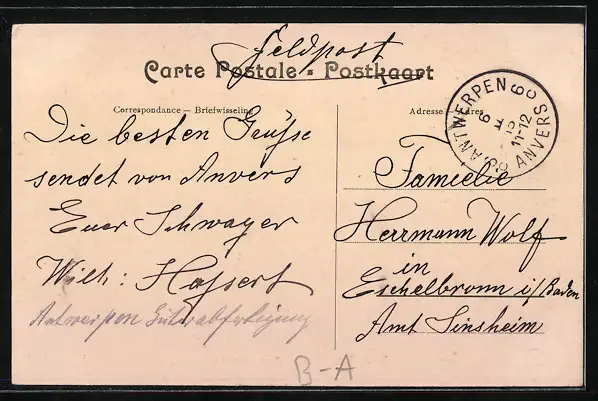 Feldpost
Carte Postale - Postkaart
Correspondance — Briefwisseling
Adresse — Adres
Die besten Grüße
sendet von Anvers
Euer Schwager
Wilh: Hassert
Antwerpen Güterabfertigung
ANTWERPEN 6
11-12
ANVERS 6
Familie
Herrmann Wolf
in
Eschelbronn i/Baden
Amt Sinsheim
B-A